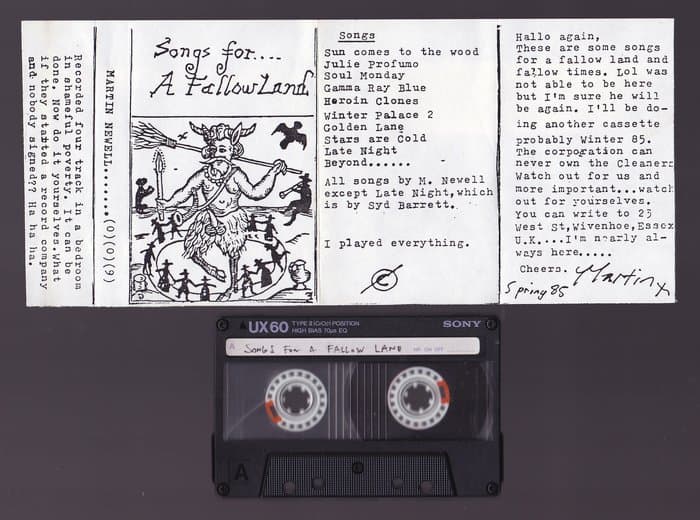 Recorded four track in a bedroom
in shameful poverty. It can be
done. Now do it yourselves.What
if they started a record company
and nobody signed?? Ha ha ha.
MARTIN NEWELL.......(0)(0)(9)
Songs for....
A Fallow Land
Songs
Sun comes to the wood
Julie Profumo
Soul Monday
Gamma Ray Blue
Heroin Clones
Winter Palace 2
Golden Lane
Stars are Cold
Late Night
Beyond......
All songs by M. Newell
except Late Night,which
is by Syd Barrett.
I played everything.
Hallo again,
These are some songs
for a fallow land and
fallow times. Lol was
not able to be here
but I'm sure he will
be again. I'll be do-
ing another cassette
probably Winter 85.
The corporation can
never own the Cleaners
Watch out for us and
more important...watch
out for yourselves.
You can write to 23
West St,Wivenhoe,Essex
U.K....I'm nearly al-
ways here.....
Cheers. Martin x
Spring 85
▲ UX60 TYPE II (CrO2) POSITION
HIGH BIAS 70µs EQ
SONY
A SONGS FOR A FALLOW LAND NR. ON OFF
A